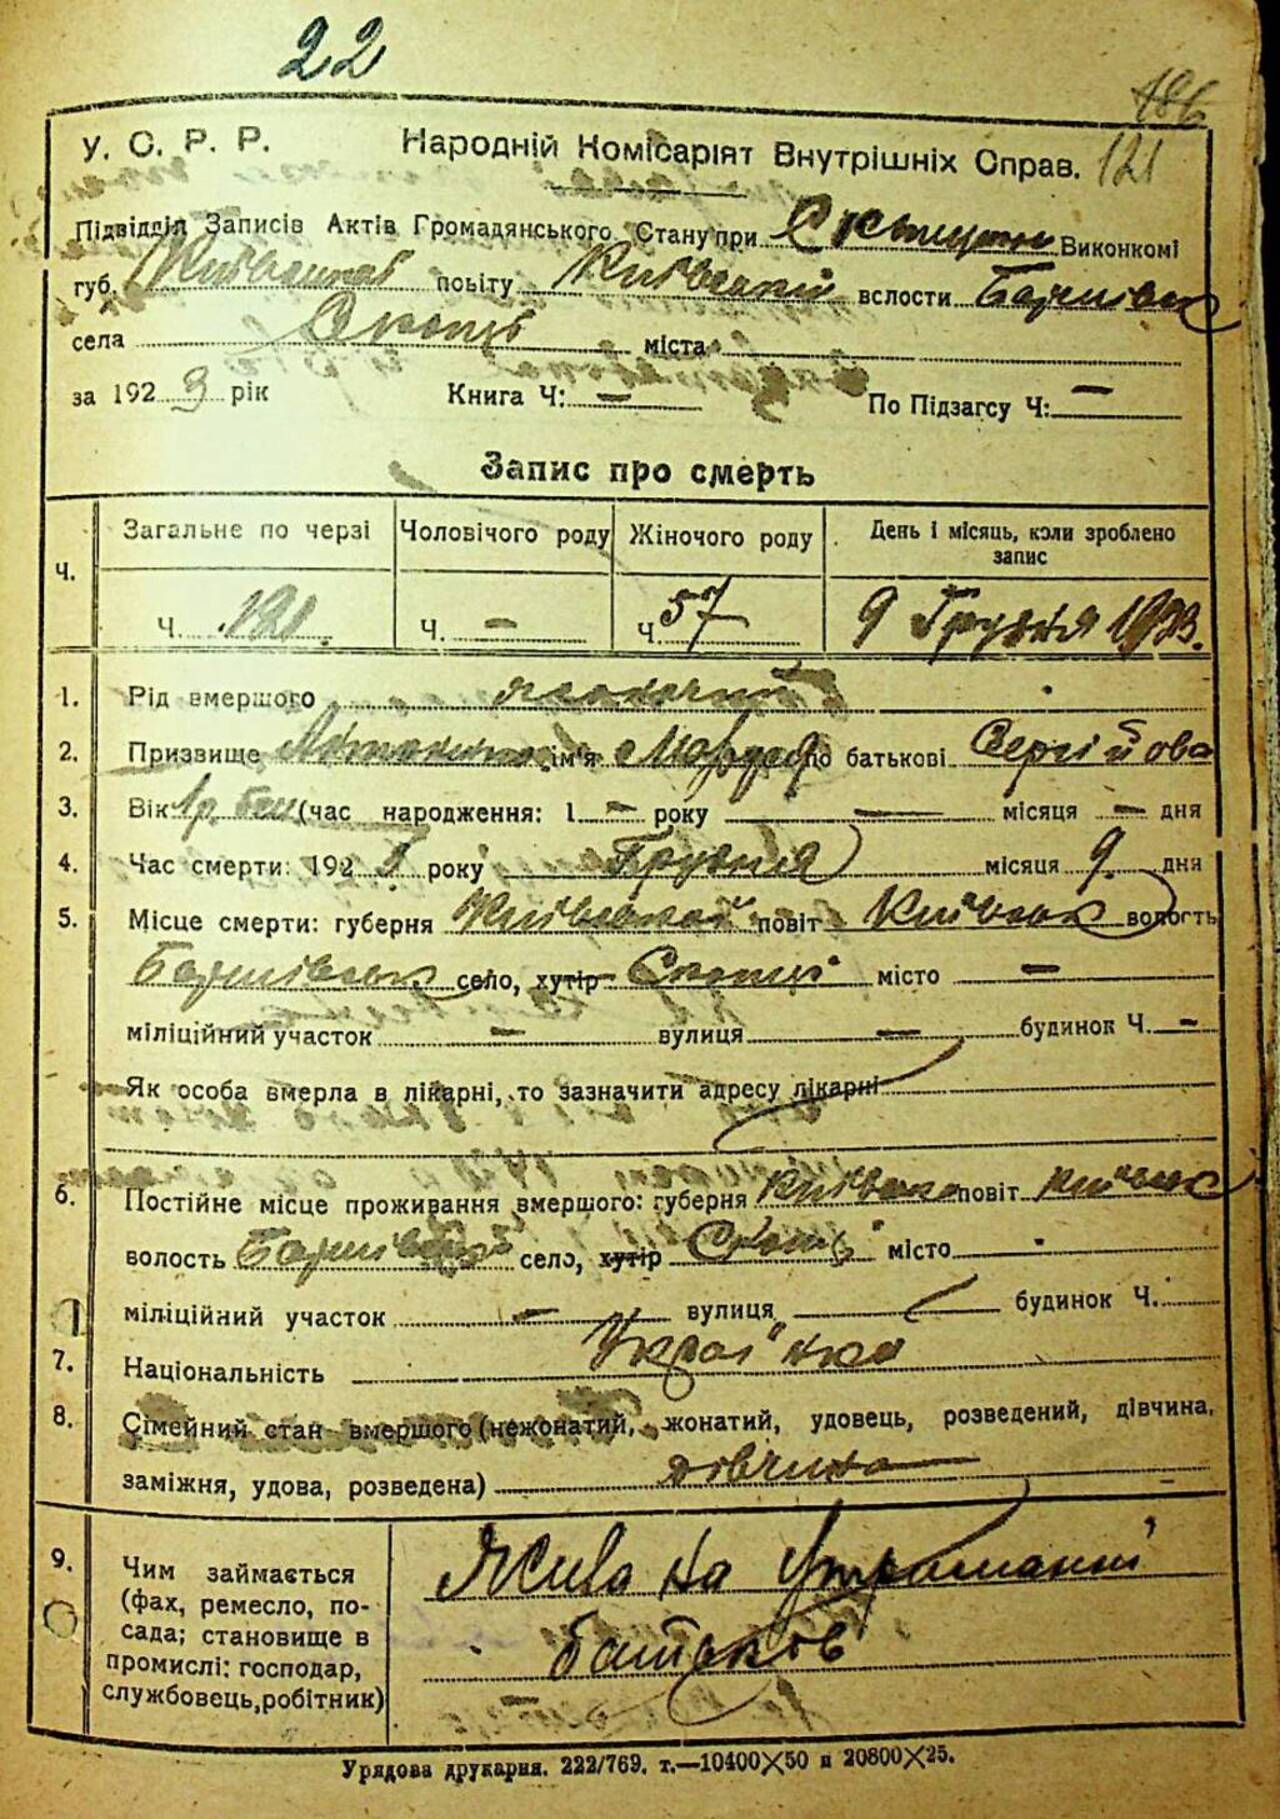 22
186
У. С. Р. Р. Народній Комісаріят Внутрішніх Справ. 121
Підвідділ Записів Актів Громадянського Стану при Виконкомі
губ. Київської повіту Київський вслости Баришівськ
села Скопці міста
за 1923 рік Книга Ч: — По Підзагсу Ч: —
Запис про смерть
Загальне по черзі Чоловічого роду Жіночого роду День і місяць, коли зроблено
запис
Ч.
Ч. 121. Ч. — Ч. 57 9 Грудня 1923.
1. Рід вмершого жіночий
2. Призвище ім'я по батькові Сергійова
3. Вік 1 р. (час народження: 1 — року — місяця — дня
4. Час смерти: 1923 року Грудня місяця 9 дня
5. Місце смерти: губерня Київської повіт Київськ волость
Баришівськ село, хутір Скопці місто —
міліційний участок — вулиця — будинок Ч. —
Як особа вмерла в лікарні, то зазначити адресу лікарні
6. Постійне місце проживання вмершого: губерня Київсько повіт Київськ
волость Баришівської село, хутір Скопці місто
міліційний участок — вулиця будинок Ч.
7. Національність Україїнка
8. Сімейний стан вмершого (нежонатий, жонатий, удовець, розведений, дівчина,
заміжня, удова, розведена) дівчина
9. Чим займається
(фах, ремесло, по-
сада; становище в
промислі: господар,
службовець, робітник)
Жива на Утриманні
батьків
Урядова друкарня. 222/769. т.—10400×50 и 20800×25.